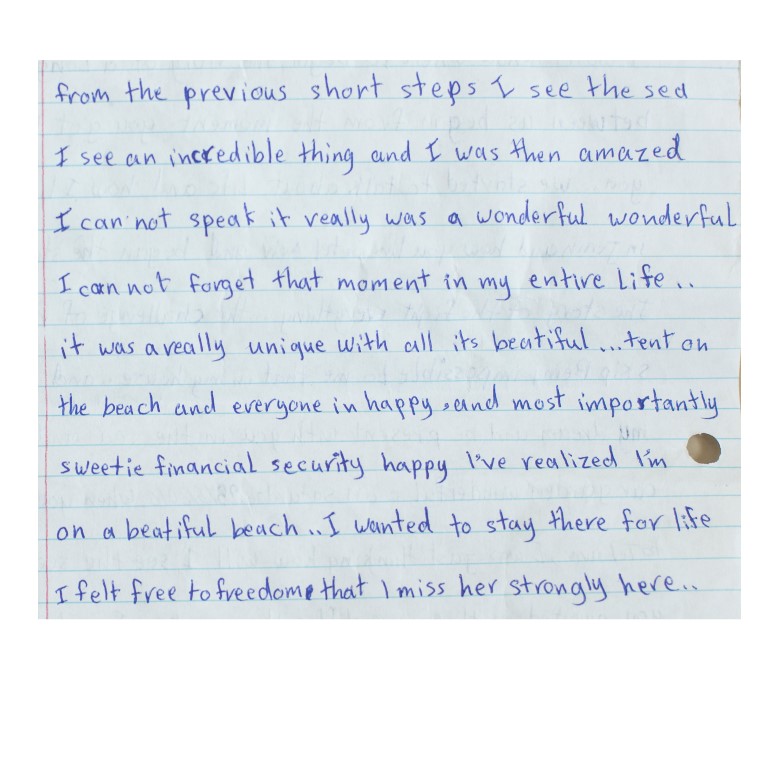 from the previous short steps I see the sea
I see an incredible thing and I was then amazed
I can not speak it really was a wonderful wonderful
I can not forget that moment in my entire life..
it was a really unique with all its beatiful ... tent on
the beach and everyone in happy , and most importantly
sweetie financial security happy I've realized I'm
on a beatiful beach .. I wanted to stay there for life
I felt free to freedome that I miss her strongly here..